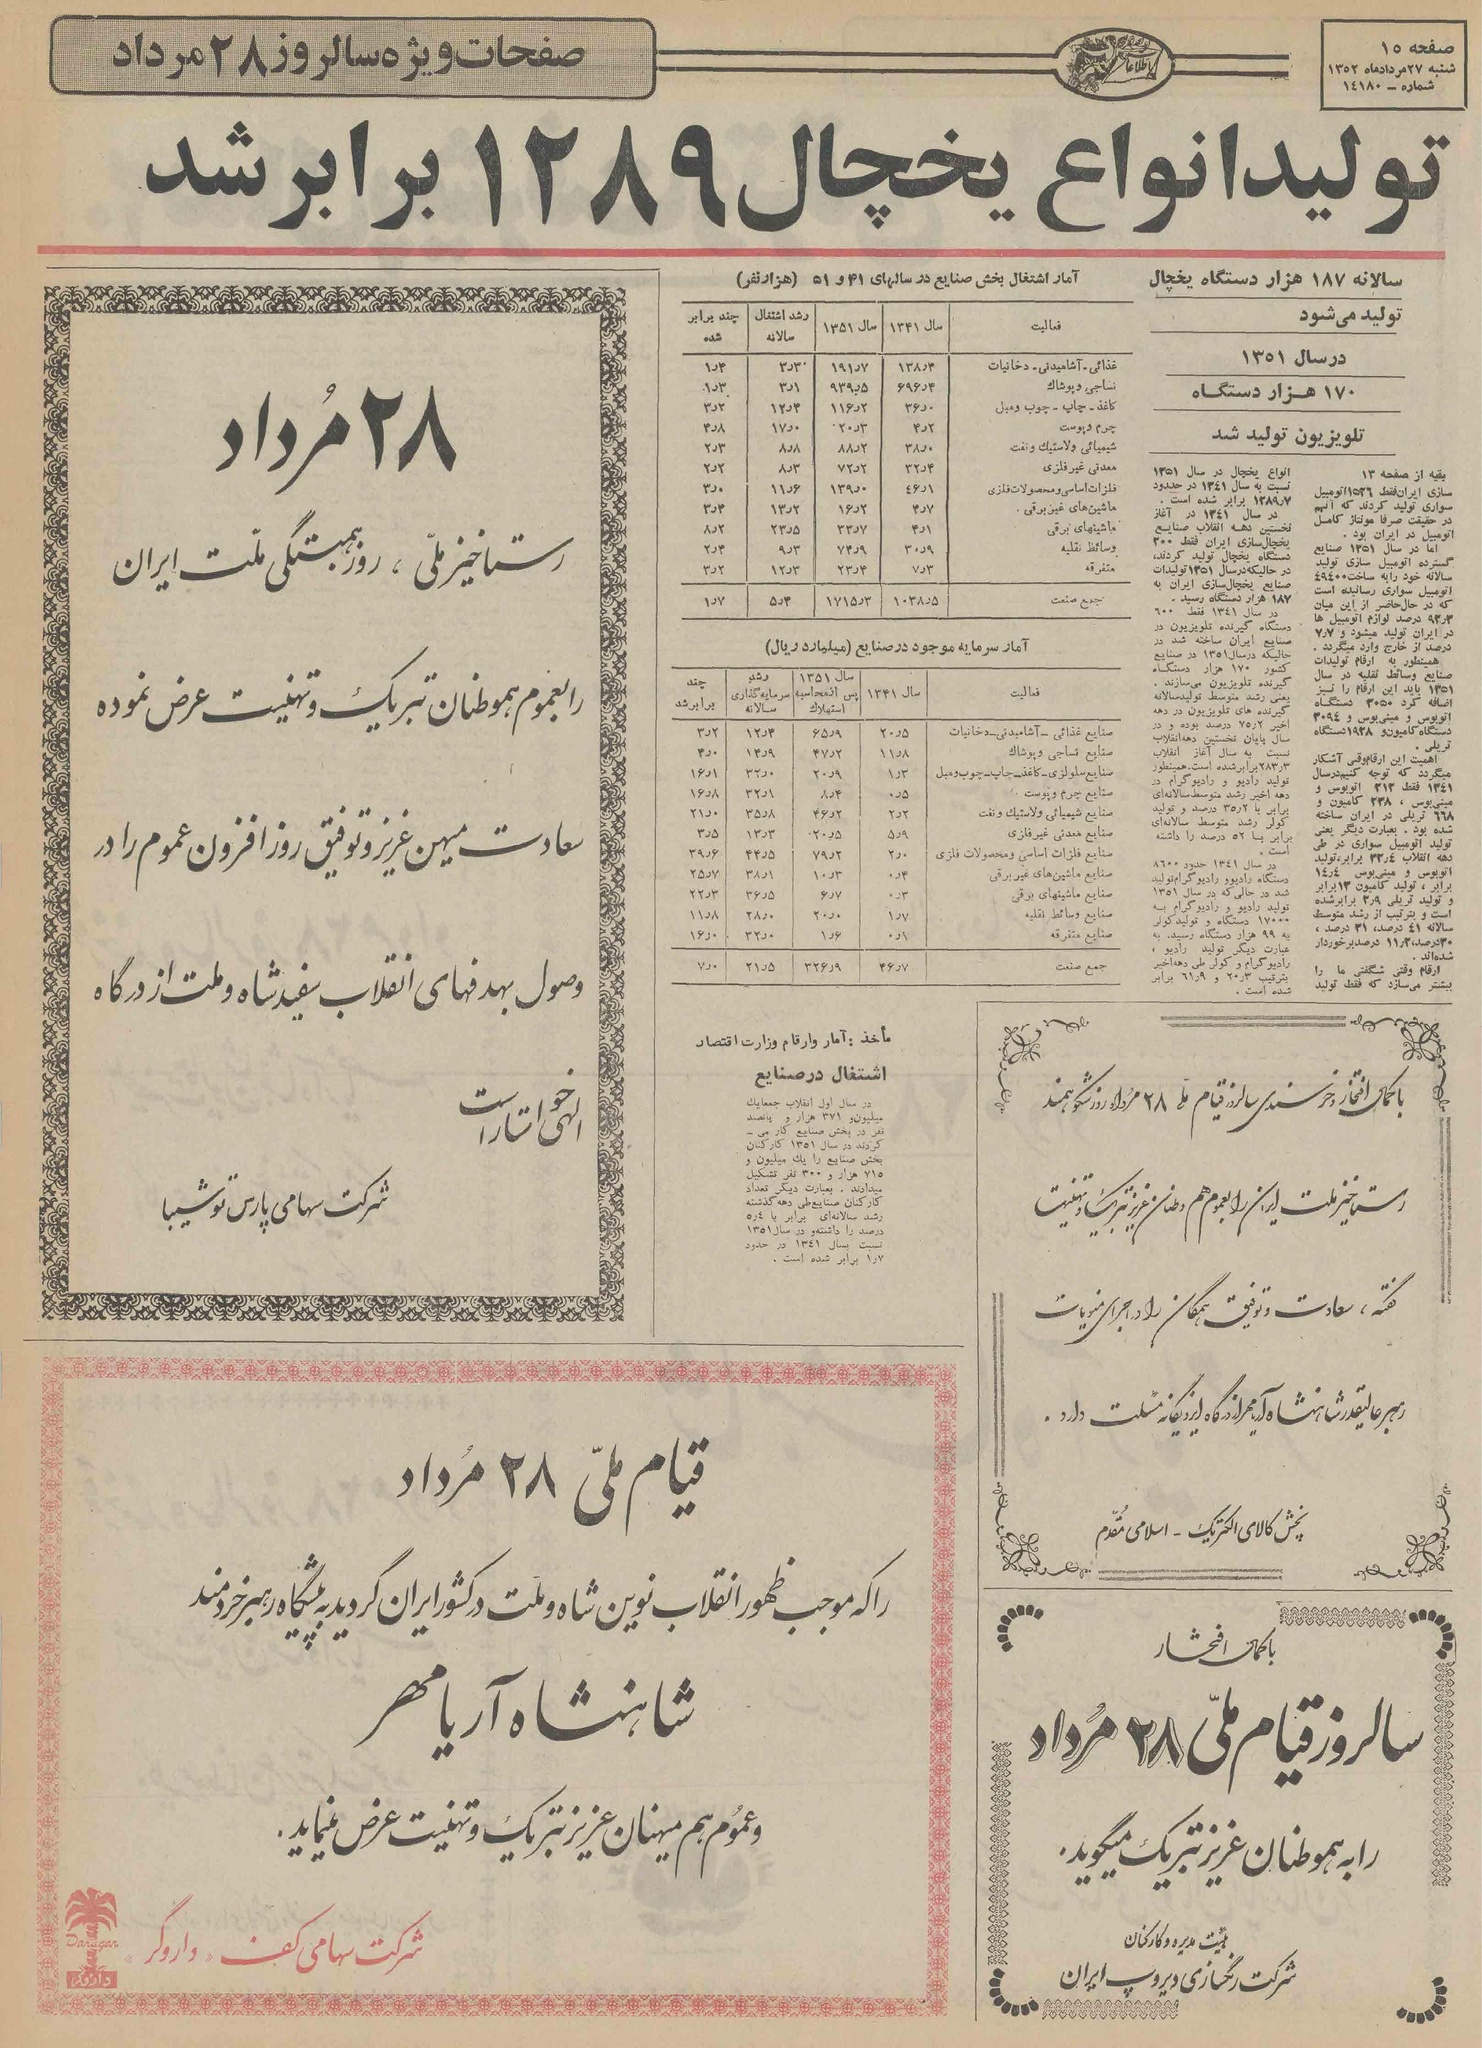 صفحه ۱۵
شنبه ۲۷ مرداد ماه ۱۳۵۲
شماره – ۱۴۱۸۰
اطلاعات
صفحات ویژه سالروز ۲۸ مرداد
تولید انواع یخچال ۱۲۸۹ برابر شد
سالانه ۱۸۷ هزار دستگاه یخچال
تولید می‌شود
در سال ۱۳۵۱
۱۷۰ هزار دستگاه
تلویزیون تولید شد
بقیه از صفحه ۱۳
سازی ایران فقط ۱۵۲۶ اتومبیل
سواری تولید کردند که آنهم
در حقیقت صرفا مونتاژ کامل
اتومبیل در ایران بود .
اما در سال ۱۳۵۱ صنایع
گسترده اتومبیل سازی تولید
سالانه خود را به ساخت ۴۹۴۰۰
اتومبیل سواری رسانیده است
که در حال‌حاضر از این میان
۹۲٫۳ درصد لوازم اتومبیل ها
در ایران تولید میشود و ۷٫۷
درصد از خارج وارد میگردد .
همینطور به ارقام تولیدات
صنایع وسائط نقلیه در سال
۱۳۵۱ باید این ارقام را نیز
اضافه کرد ۳۰۵۰ دستگاه
اتوبوس و مینی‌بوس و ۳۰۹۴
دستگاه کامیون و ۱۹۳۸ دستگاه
تریلی .
اهمیت این ارقام وقتی آشکار
میگردد که توجه کنیم در سال
۱۳۴۱ فقط ۲۱۲ اتوبوس و
مینی‌بوس ، ۲۳۸ کامیون و
۶۶۸ تریلی در ایران ساخته
شده بود . بعبارت دیگر یعنی
تولید اتومبیل سواری در طی
دهه انقلاب ۳۲٫۴ برابر، تولید
اتوبوس و مینی‌بوس ۱۴٫۴
برابر ، تولید کامیون ۱۳ برابر
و تولید تریلی ۲٫۹ برابر شده
است و بترتیب از رشد متوسط
سالانه ۴۱ درصد، ۳۱ درصد ،
۳۰ درصد، ۱۱٫۲ درصد برخوردار
شده‌اند .
ارقام وقتی شگفتی ما را
بیشتر می‌سازد که فقط تولید
انواع یخچال در سال ۱۳۵۱
نسبت به سال ۱۳۴۱ در حدود
۱۲۸۹٫۷ برابر شده است .
در سال ۱۳۴۱ در آغاز
نخستین دهه انقلاب صنایع
یخچال‌سازی ایران فقط ۲۰۰
دستگاه یخچال تولید کردند،
در حالیکه در سال ۱۳۵۱ تولیدات
صنایع یخچال‌سازی ایران به
۱۸۷ هزار دستگاه رسید .
در سال ۱۳۴۱ فقط ۶۰۰
دستگاه گیرنده تلویزیون در
صنایع ایران ساخته شد در
حالیکه در سال ۱۳۵۱ در صنایع
کشور ۱۷۰ هزار دستگاه
گیرنده تلویزیون می‌سازند .
یعنی رشد متوسط تولید سالانه
گیرنده های تلویزیون در دهه
اخیر ۷۵٫۲ درصد بوده و در
سال پایان نخستین دهه انقلاب
نسبت به سال آغاز انقلاب
۲۸۳٫۳ برابر شده است. همینطور
تولید رادیو و رادیوگرام در
دهه اخیر رشد متوسط سالانه‌ای
برابر با ۳۵٫۲ درصد و تولید
کولر رشد متوسط سالانه‌ای
برابر با ۵۲ درصد را داشته
است .
در سال ۱۳۴۱ حدود ۸۶۰۰
دستگاه رادیو و رادیوگرام تولید
شد در حالی که در سال ۱۳۵۱
تولید رادیو و رادیوگرام به
۱۷۰۰۰ دستگاه و تولید کولر
به ۹۹ هزار دستگاه رسید. به
عبارت دیگر تولید رادیو ،
رادیوگرام و کولر طی دهه اخیر
بترتیب ۲۰٫۳ و ۶۱٫۹ برابر
شده است .
آمار اشتغال بخش صنایع در سالهای ۴۱ و ۵۱ (هزار نفر)
فعالیت | سال ۱۳۴۱ | سال ۱۳۵۱ | رشد اشتغال سالانه | چند برابر شده
غذائی – آشامیدنی – دخانیات ۱۳۸٫۴ ۱۹۱٫۷ ۳٫۳ ۱٫۴
نساجی و پوشاک ۶۹۶٫۴ ۹۳۹٫۵ ۳٫۱ ۱٫۳
کاغذ – چاپ – چوب و مبل ۳۶٫۰ ۱۱۶٫۲ ۱۲٫۴ ۳٫۲
چرم و پوست ۴٫۲ ۲۰٫۳ ۱۷٫۰ ۴٫۸
شیمیائی و لاستیک و نفت ۳۸٫۰ ۸۸٫۲ ۸٫۸ ۲٫۳
معدنی غیر فلزی ۳۲٫۴ ۷۲٫۲ ۸٫۳ ۲٫۲
فلزات اساسی و محصولات فلزی ۴۶٫۱ ۱۳۹٫۰ ۱۱٫۶ ۳٫۰
ماشین‌های غیر برقی ۴٫۷ ۱۶٫۲ ۱۳٫۲ ۳٫۴
ماشینهای برقی ۴٫۱ ۳۳٫۷ ۲۳٫۵ ۸٫۲
وسائط نقلیه ۳۰٫۹ ۷۴٫۹ ۹٫۳ ۲٫۴
متفرقه ۷٫۳ ۲۳٫۴ ۱۲٫۳ ۳٫۲
جمع صنعت ۱۰۳۸٫۵ ۱۷۱۵٫۳ ۵٫۴ ۱٫۷
آمار سرمایه موجود در صنایع (میلیارد ریال)
فعالیت | سال ۱۳۴۱ | سال ۱۳۵۱ پس از محاسبه استهلاک | رشد سرمایه‌گذاری سالانه | چند برابر شد
صنایع غذائی – آشامیدنی – دخانیات ۲۰٫۵ ۶۵٫۹ ۱۲٫۴ ۳٫۲
صنایع نساجی و پوشاک ۱۱٫۸ ۴۷٫۲ ۱۴٫۹ ۴٫۰
صنایع سلولزی – کاغذ – چاپ – چوب و مبل ۱٫۳ ۲۰٫۹ ۳۲٫۰ ۱۶٫۱
صنایع چرم و پوست ۰٫۵ ۸٫۴ ۳۲٫۱ ۱۶٫۸
صنایع شیمیائی و لاستیک و نفت ۲٫۲ ۴۶٫۲ ۳۵٫۸ ۲۱٫۰
صنایع معدنی غیر فلزی ۵٫۹ ۲۰٫۵ ۱۳٫۳ ۳٫۵
صنایع فلزات اساسی و محصولات فلزی ۲٫۰ ۷۹٫۲ ۴۴٫۵ ۳۹٫۶
صنایع ماشین‌های غیر برقی ۰٫۴ ۱۰٫۳ ۳۸٫۱ ۲۵٫۷
صنایع ماشینهای برقی ۰٫۳ ۶٫۷ ۳۶٫۵ ۲۲٫۳
صنایع وسائط نقلیه ۱٫۷ ۲۰٫۰ ۲۸٫۰ ۱۱٫۸
صنایع متفرقه ۰٫۱ ۱٫۶ ۳۲٫۰ ۱۶٫۰
جمع صنعت ۴۶٫۷ ۳۲۶٫۹ ۲۱٫۵ ۷٫۰
مأخذ : آمار و ارقام وزارت اقتصاد
اشتغال در صنایع
در سال اول انقلاب جمعا یک
میلیون و ۳۷۱ هزار و پانصد
نفر در بخش صنایع کار می –
کردند در سال ۱۳۵۱ کارکنان
بخش صنایع را یک میلیون و
۷۱۵ هزار و ۳۰۰ نفر تشکیل
میدادند . بعبارت دیگر تعداد
کارکنان صنایع طی دهه گذشته
رشد سالانه‌ای برابر با ۵٫۴
درصد را داشته و در سال ۱۳۵۱
نسبت بسال ۱۳۴۱ در حدود
۱٫۷ برابر شده است .
۲۸ مُرداد
رستاخیز ملّی ، روز همبستگی ملت ایران
را بعموم هموطنان تبریک و تهنیت عرض نموده
سعادت میهن عزیز و توفیق روز افزون عموم را در
وصول بهدفهای انقلاب سفید شاه و ملت از درگاه
الهی خواستار است
شرکت سهامی پارس توشیبا
با کمال افتخار و خرسندی سالروز قیام ملّی ۲۸ مرداد روز شکوهمند
رستاخیز ملت ایران را بعموم هم وطنان عزیز تبریک و تهنیت
گفته ، سعادت و توفیق همگان را در اجرای منویات
رهبر عالیقدر شاهنشاه آریامهر از درگاه ایزد یگانه مسئلت دارد .
پخش کالای الکتریک – اسلامی مُقدّم
قیام ملّی ۲۸ مُرداد
را که موجب ظهور انقلاب نوین شاه و ملت در کشور ایران گردید به پیشگاه رهبر خردمند
شاهنشاه آریامهر
و عموم هم میهنان عزیز تبریک و تهنیت عرض مینماید .
شرکت سهامی کف «داروگر»
Darugar
داروگر
با کمال افتخار
سالروز قیام ملّی ۲۸ مُرداد
را به هموطنان عزیز تبریک میگوید .
هیئت مدیره و کارکنان
شرکت رنگسازی دیروپ ایران